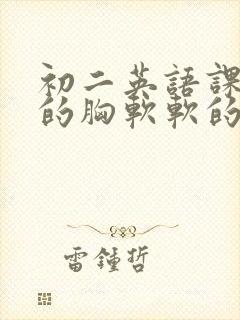 初二英語課
的胸軟軟的
雷鍾哲